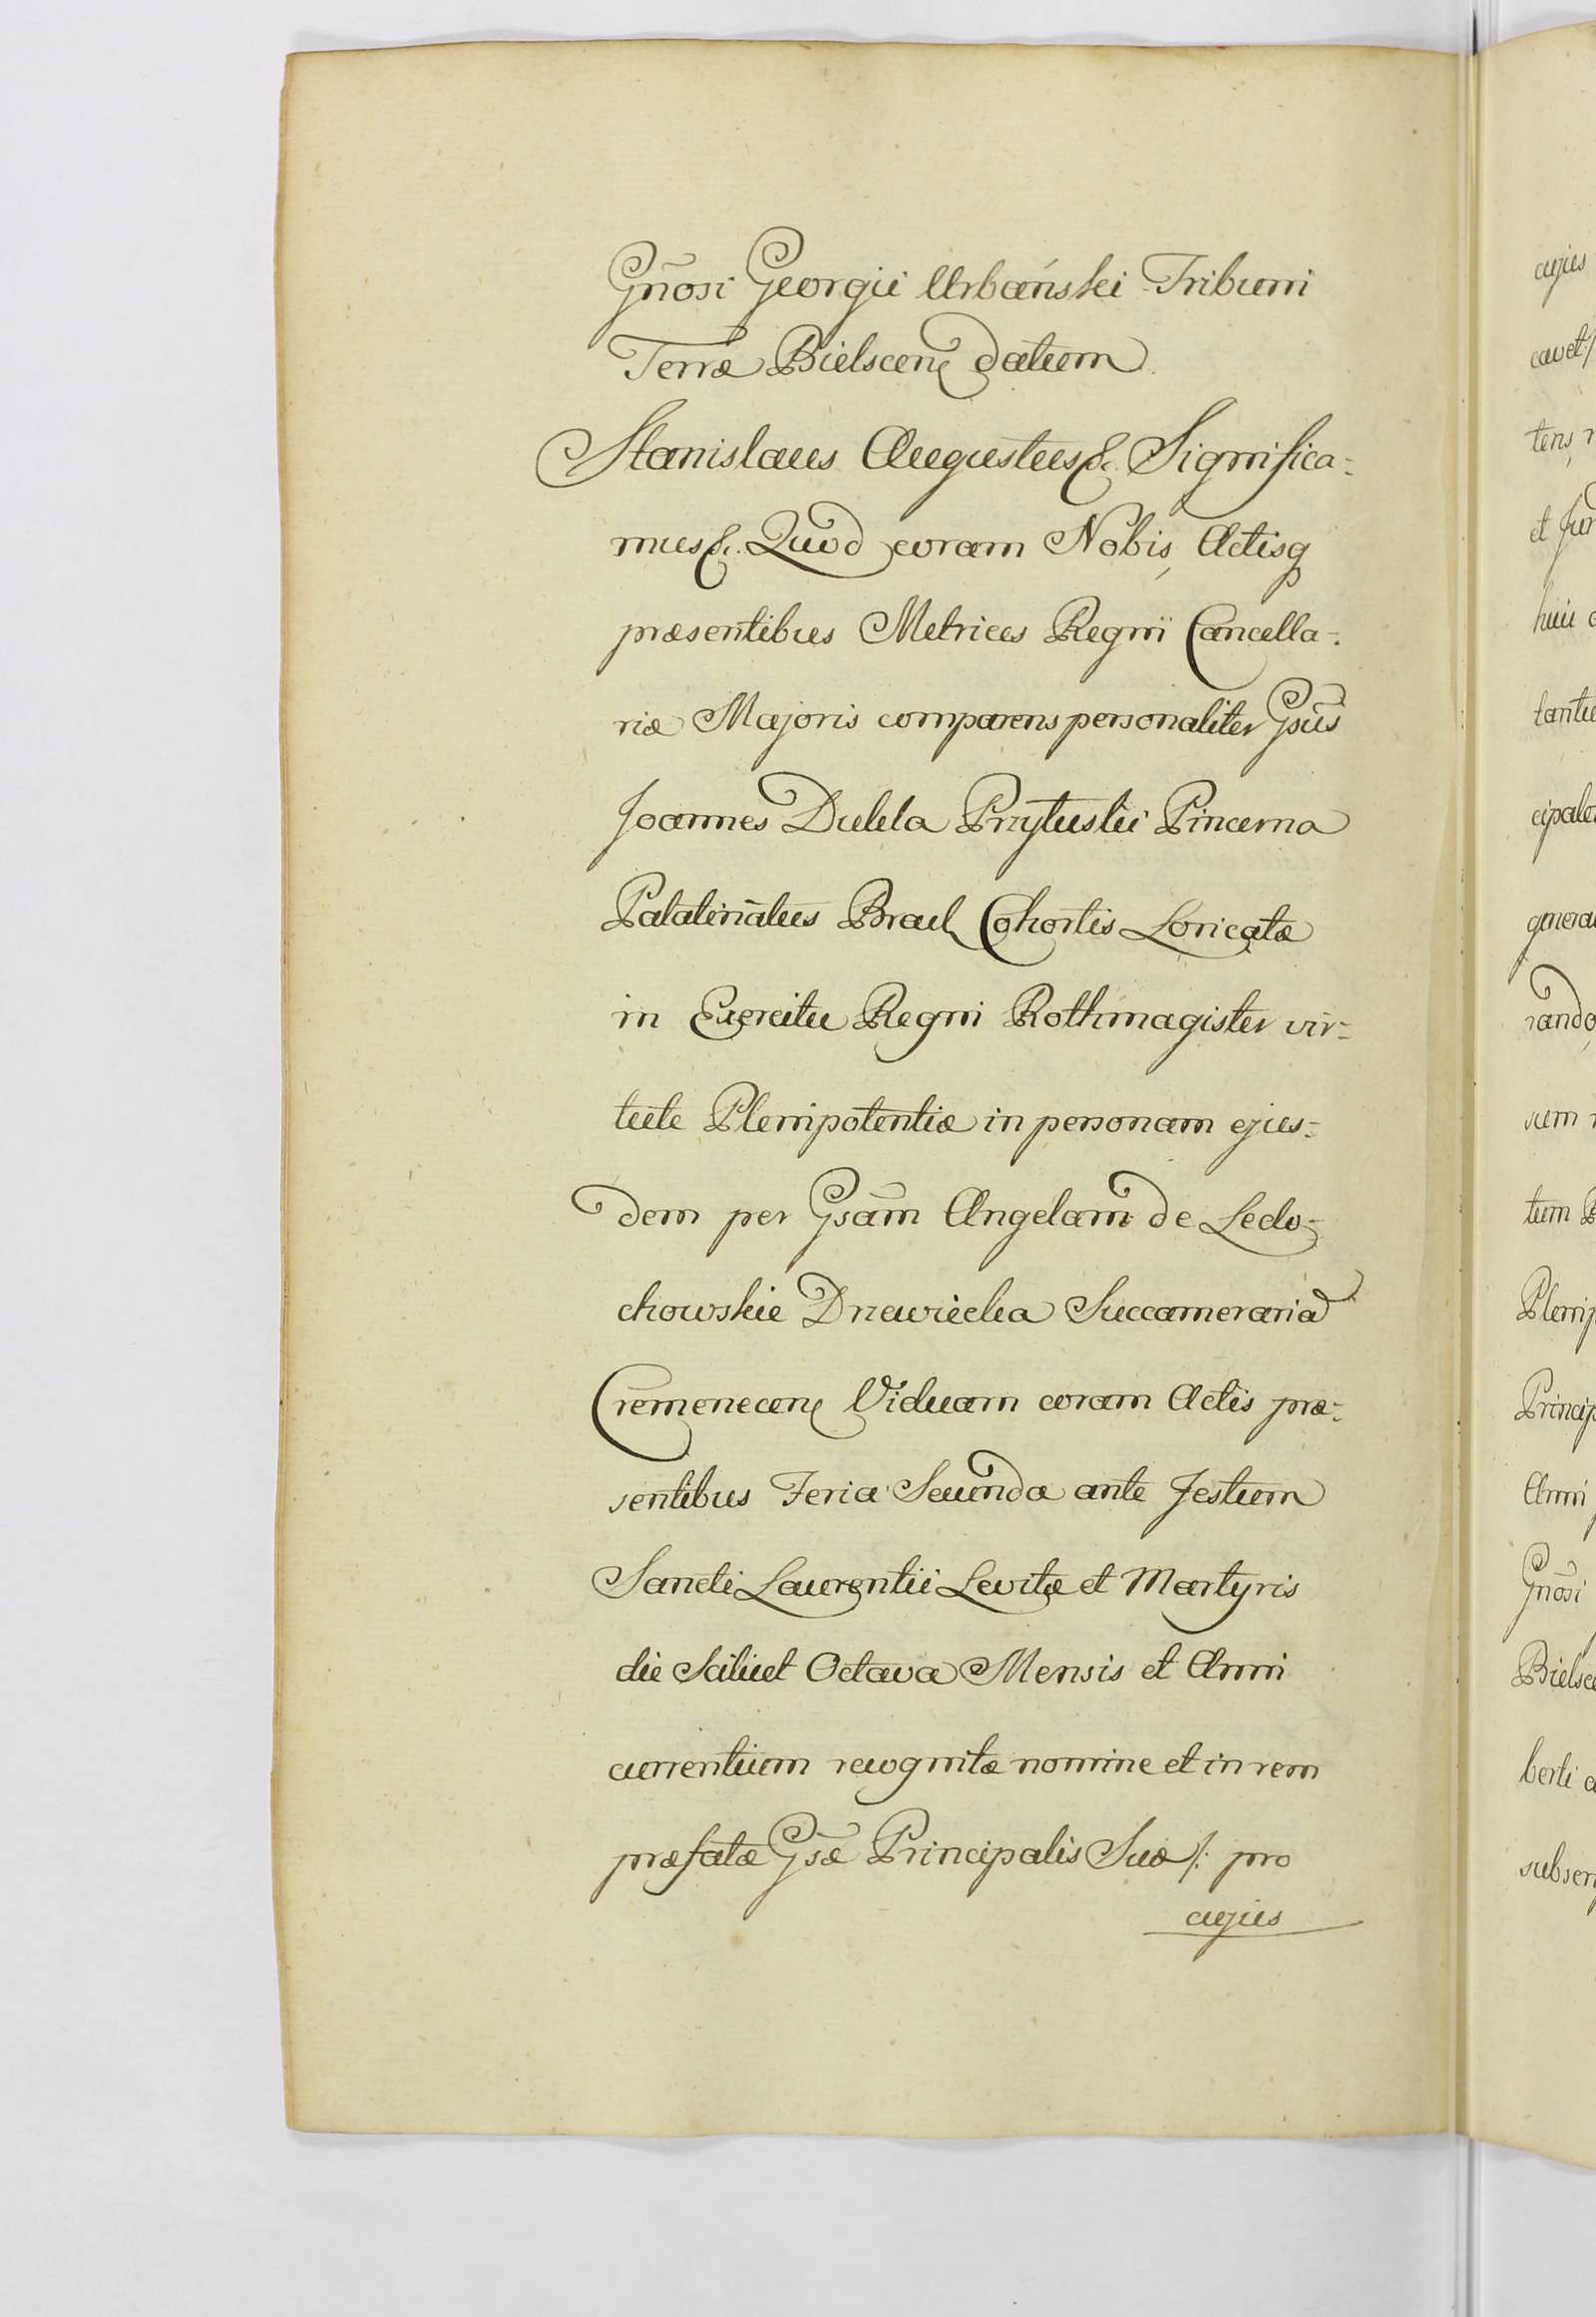 Gñosi Georgii Urbański Tribuni
Terræ Bielscen̄ datum
Stanislaus Augustus &c. Significa=
mus &c. Quod coram Nobis, Actisq
præsentibus Metrices Regni Cancella=
riæ Majoris comparens personaliter Gs̄us
Joannes Dukla Przytuski Pincerna
Palatin̄atus Bracl Cohortis Loricatæ
in Exercitu Regni Rothmagister vir=
tute Plenipotentiæ in personam ejus=
dem per Gs̄am Angelam de Ledo=
chowskie Drzewiecka Succameraria
Cremenecen̄ Viduam coram Actis præ=
sentibus Feria Secunda ante Festum
Sancti Laurentii Levitæ et Martyris
die Scilicet Octava Mensis et Anni
currentium recognitæ nomine et in rem
præfatæ Gs̄æ Principalis Suæ /: pro
cujus
cujus
cavet/
tens
et Jur
huic
tantu
cipale
genera
rando
sum
tum P
Plenip
Princip
Anni
Gñosi
Bielsce
berti a
subscr